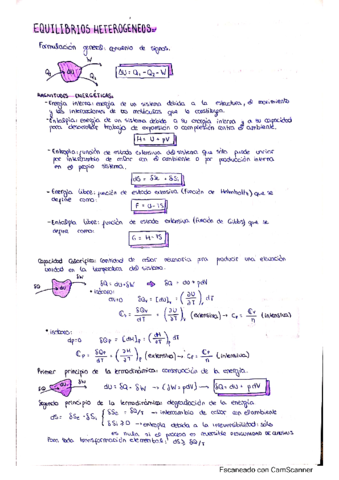 EQUILIBRIOS HETEROGENEOS
Formulación general: convenio de signos.
W
Q1
ΔU
Q2
ΔU = Q1 - Q2 - W
MAGNITUDES ENERGÉTICAS:
- Energía interna: energía de un sistema debida a la estructura, el movimiento
y las interacciones de las moléculas que lo constituyen.
- Entalpía: energía de un sistema debida a su energía interna y a su capacidad
para desarrollar trabajo de expansión o compresión contra el ambiente.
H = U + pV
- Entropía: función de estado extensiva del sistema que sólo puede variar
por intercambio de calor con el ambiente o por producción interna
en el propio sistema.
dS = δSe + δSi
- Energía libre: función de estado extensiva (función de Helmholtz) que se
define como:
F = U - TS
- Entalpía libre: función de estado extensiva (función de Gibbs) que se
define como:
G = H - TS
Capacidad Calorífica: cantidad de calor necesaria para producir una elevación
unidad en la temperatura del sistema.
δW
δQ
dU
δQ = dU + δW ⇒ δQ = dU + pdV
* isócoro:
dV=0 δQv = [dU]v = (∂U/∂T)v dT
Cv = δQv/dT = (∂U/∂T)v (extensiva) → cv = Cv/n (intensiva)
* isobaro:
dp=0 δQp = [dH]p = (∂H/∂T)p dT
Cp = δQp/dT = (∂H/∂T)p (extensiva) → cp = Cp/n (intensiva)
Primer principio de la termodinámica: conservación de la energía.
δW
δQ
dU
dU = δQ - δW → (δW = pdV) → δQ = dU + pdV
Segundo principio de la termodinámica: degradación de la energía
dS = δSe + δSi
δSe = δQ/T → intercambio de calor con el ambiente
δSi ≥ 0 → entropía debida a la irreversibilidad: sólo
es nula si el proceso es reversible DESIGUALDAD DE CLAUSIUS
Para toda transformación elemental: dS ≥ δQ/T
Escaneado con CamScanner